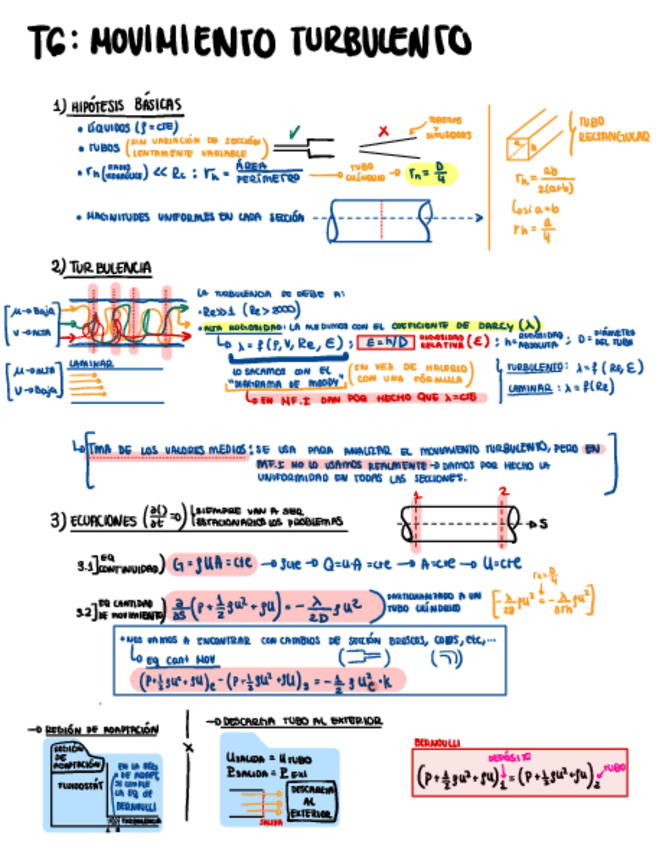 T6: MOVIMIENTO TURBULENTO
1) HIPÓTESIS BÁSICAS
• LÍQUIDOS (ρ = CTE)
• TUBOS (SIN VARIACIÓN DE SECCIÓN
LENTAMENTE VARIABLE)
✓
x
TOBERAS Y DIFUSORES
• rh (RADIO HIDRÁULICO) << Rc : rh = ÁREA / PERÍMETRO → TUBO CILÍNDRICO → rh = D/4
• MAGNITUDES UNIFORMES EN CADA SECCIÓN
TUBO RECTANGULAR
a
b
rh = ab / 2(a+b)
si a=b
rh = a/4
2) TURBULENCIA
μ → Baja
V → ALTA
LAMINAR
μ → ALTA
V → Baja
LA TURBULENCIA SE DEBE A:
• Re>>1 (Re>2000)
• ALTA RUGOSIDAD: LA MEDIMOS CON EL COEFICIENTE DE DARCY (λ)
λ = f(ρ, V, Re, ε) ; ε = h/D RUGOSIDAD RELATIVA (ε) ; h = RUGOSIDAD ABSOLUTA ; D = DIÁMETRO DEL TUBO
LO SACAMOS CON EL "DIAGRAMA DE MOODY" (EN VEZ DE HACERLO CON UNA FÓRMULA)
EN MF.I DAN POR HECHO QUE λ=CTE
TURBULENTO: λ = f(Re, ε)
LAMINAR: λ = f(Re)
TMA DE LOS VALORES MEDIOS: SE USA PARA ANALIZAR EL MOVIMIENTO TURBULENTO, PERO EN
MF.I NO LO USAMOS REALMENTE → DAMOS POR HECHO LA
UNIFORMIDAD EN TODAS LAS SECCIONES.
3) ECUACIONES (∂()/∂t = 0) SIEMPRE VAN A SER
ESTACIONARIOS LOS PROBLEMAS
1
2
S
3.1] EQ CONTINUIDAD) G = ρUA = cte → ρcte → Q=U·A = cte → A=cte → U=cte
3.2] EQ CANTIDAD DE MOVIMIENTO) ∂/∂S (P + ½ρU² + ρU) = − λ/2D ρU²) PARTICULARIZADO A UN
TUBO CILÍNDRICO
rh = D/4
[−λ/2D ρU² = −λ/8rh ρU²]
• NOS VAMOS A ENCONTRAR CON CAMBIOS DE SECCIÓN BRUSCOS, CODOS, ETC,...
EQ CANT MOV
(P+½ρU²+ρU)e − (P+½ρU²+ρU)s = −½ρUc²·k
→ REGIÓN DE ADAPTACIÓN
REGIÓN DE ADAPTACIÓN
FLUIDOSTÁT
EN LA REG DE ADAPT SE CUMPLE LA EQ DE BERNOULLI
TURBULENCIA
→ DESCARGA TUBO AL EXTERIOR
USALIDA = UTUBO
PSALIDA = PEXT
DESCARGA AL EXTERIOR
SALIDA
BERNOULLI
DEPÓSITO
(P+½ρU²+ρU)1 = (P+½ρU²+ρU)2
TUBO